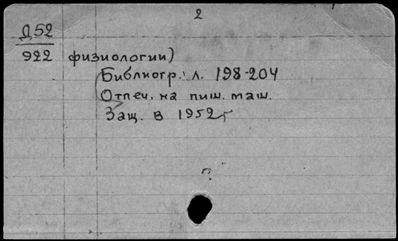 2
Д52
922 физиологии)
Библиогр.: л. 198-204
Отпеч. на пиш. маш.
Защ. в 1952 г